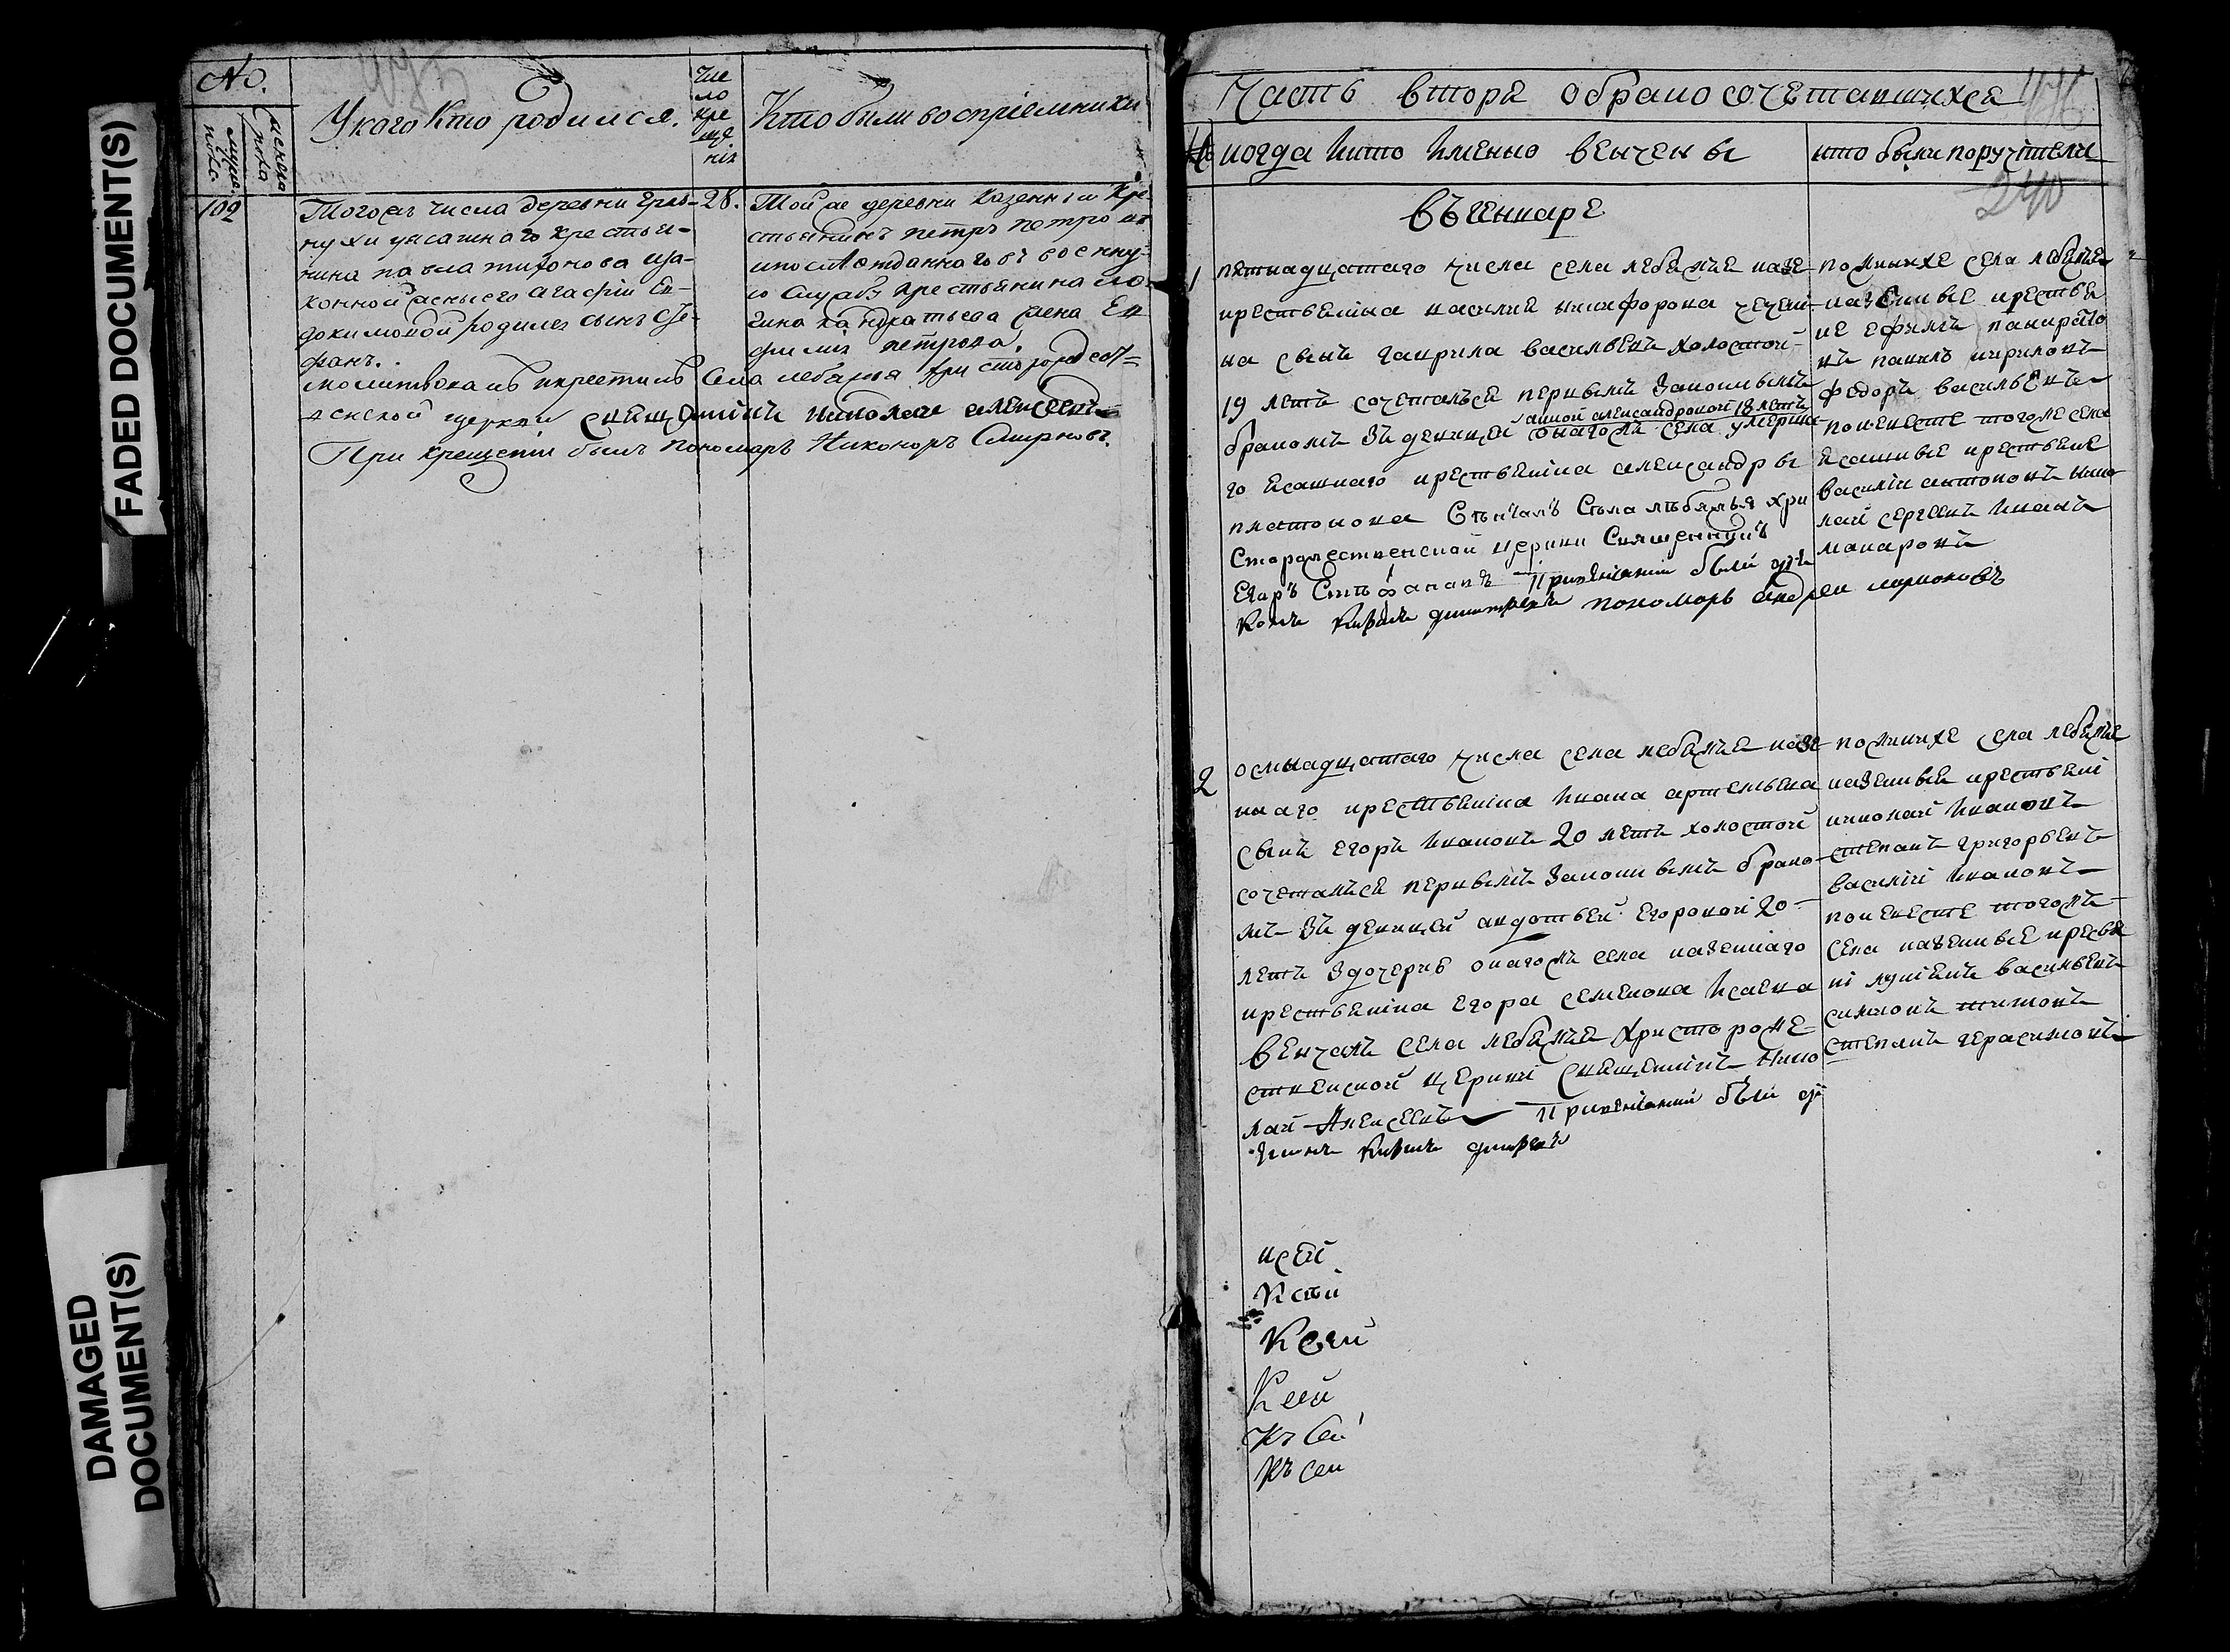 FADED DOCUMENT(S)
DAMAGED
DOCUMENT(S)
No.
мужеска пола
женска пола
У кого кто родился.
Число крещенія
Кто были воспріемники
109
Тогожъ числа деревни
ясашнаго крестья-
нина павла тихонова иза-
конной жены его агафіи Ев-
докимовой родился сынъ Сте-
фанъ.
28.
Той же деревни казенныи кре-
стьянинъ петръ петровъ
и после отданнаго въ военну-
ю службу крестьянина
кандратьева жена Ев
фимія петрова.
молитвовалъ и крестилъ Села лебажья христорождест-
венской церкви священникъ николаи алексеевъ
При крещеніи былъ пономарь Никоноръ Смирновъ.
Часть втора о бракосочетавшихся
476
когда и кто имено венчены
кто были поручители
240
въ генваре
1
пятнадцатаго числа села лебяжье казе
крестьянина василия никифорова
на сынъ гаврила васильевъ холостой
19 летъ сочетался первымъ законнымъ
анной александровой 18 летъ
бракомъ зъ девицей онагожъ села умерша
го ясашнаго крестьянина александры
платонова Венчалъ Села лебяжья хри
сторожественской церкви Священникъ
Егоръ Стефановъ При венчании были дья
конъ дмитревъ пономарь андреи ларионовъ
по женихе села лебяжье
казенные крестьян
не ефимъ панкрато
въ павелъ кириловъ
федоръ васильевъ
по невесте тогоже села
ясашные крестьяне
василий антоновъ нико
лай сергеевъ иванъ
макаровъ
2
осмнадцатаго числа села лебяжье казе
ннаго крестьянина ивана артемьева
сынъ егоръ ивановъ 20 летъ холостой
сочетался первымъ законнымъ брако
мъ зъ девицей авдотьей егоровой 20
летъ здочерью онагожъ села казеннаго
крестьянина егора семенова исаева
венчалъ села лебяжье христорожe
ственской церкви священникъ нико
лай Алексеевъ При венчании были дь
по женихе села лебяжье
казенные крестьяни
николай ивановъ
степанъ григорьевъ
василий ивановъ
по невесте тогожъ
села казенные
васильевъ
степанъ герасимовъ
ксей
Ксей
Ксей
Къ сей
Къ сей